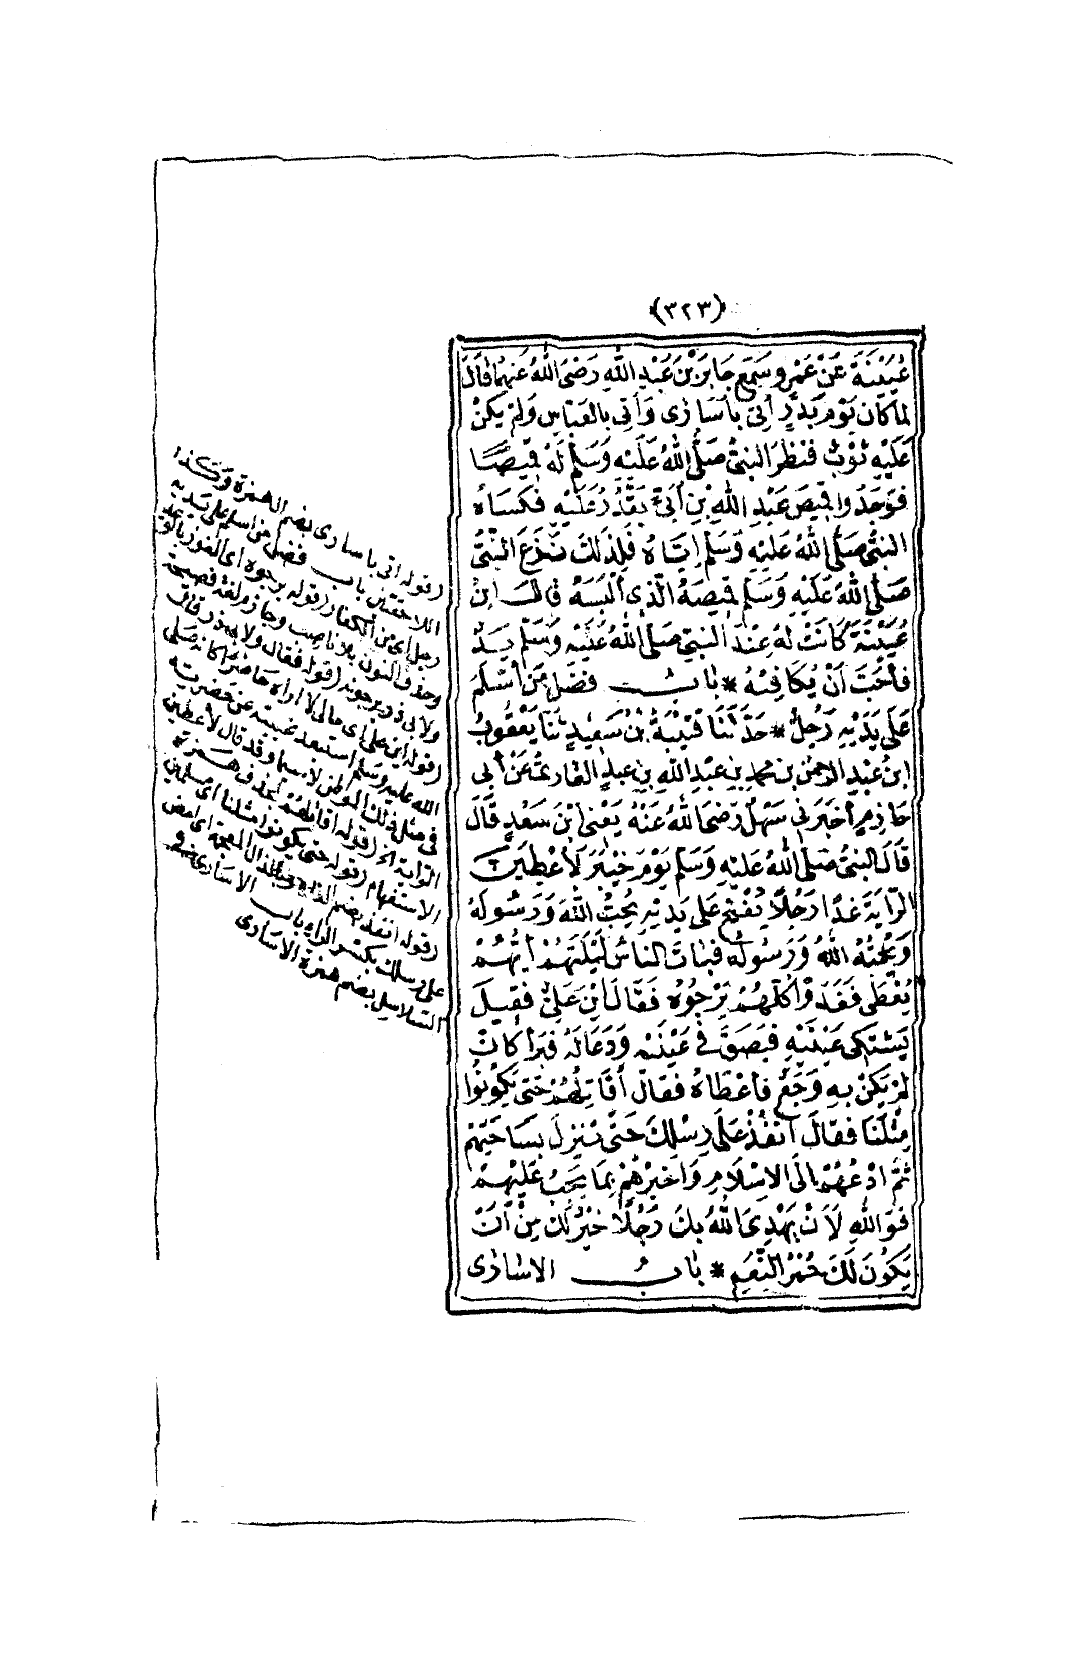 (٣٢٣)
عُيَيْنَةَ عَنْ عَمْرٍو سَمِعَ جَابِرَ بْنَ عَبْدِ اللّٰهِ رَضِىَ اللّٰهُ عَنْهُمَا قَالَ
لما كَانَ يَوْمَ بَدْرٍ اُتِىَ بِاُسَارَى وَاُتِىَ بالعَبّاسِ وَلَمْ يَكُنْ
عَلَيْهِ ثَوْبٌ فَنَظَرَ النبىُّ صَلَّى اللّٰهُ عَلَيْهِ وَسَلَّمَ لَهُ قَمِيصًا
فَوَجَدُوا قَمِيصَ عَبْدِ اللّٰهِ بْنِ اُبَىٍّ يَقْدُرُ عَلَيْهِ فَكَسَاهُ
النبىُّ صَلَّى اللّٰهُ عَلَيْهِ وَسَلَّمَ اِيَّاهُ فَلِذٰلِكَ نَزَعَ النَّبِىُّ
صَلَّى اللّٰهُ عَلَيْهِ وَسَلَّمَ قَمِيصَهُ الَّذِى اَلْبَسَهُ قَالَ ابنُ
عُيَيْنَةَ كَانَتْ لَهُ عِنْدَ النبىِّ صَلَّى اللّٰهُ عَلَيْهِ وَسَلَّمَ يَدٌ
فَاَحَبَّ اَنْ يُكَافِئَهُ * بابُ فَضْلِ مَنْ اَسْلَمَ
عَلَى يَدَيْهِ رَجُلٌ * حَدَّثَنَا قُتَيْبَةُ بْنُ سَعِيدٍ ثَنَا يَعْقُوبُ
ابنُ عَبْدِ الرحمٰنِ بنِ محمدِ بنِ عَبْدِ اللّٰهِ بنِ عَبدٍ القارىُّ عَنْ اَبِى
حَازِمٍ اَخْبَرَنِى سَهْلٌ رَضِىَ اللّٰهُ عَنْهُ يَعْنِى ابْنَ سَعْدٍ قَالَ
قَالَ النبىُّ صَلَّى اللّٰهُ عَلَيْهِ وَسَلَّمَ يَوْمَ خَيْبَرَ لَاُعْطِيَنَّ
الرَّايَةَ غَدًا رَجُلًا يُفْتَحُ عَلَى يَدَيْهِ يُحِبُّ اللّٰهَ وَرَسُولَهُ
وَيُحِبُّهُ اللّٰهُ وَرَسُولُهُ فَبَاتَ النَّاسُ لَيْلَتَهُمْ اَيُّهُمْ
يُعْطَى فَغَدَوْا كُلُّهُمْ يَرْجُوهُ فَقَالَ اَيْنَ عَلِىٌّ فَقِيلَ
يَشْتَكِى عَيْنَيْهِ فَبَصَقَ فِى عَيْنَيْهِ وَدَعَا لَهُ فَبَرَأَ كَاَنْ
لَمْ يَكُنْ بِهِ وَجَعٌ فَاَعْطَاهُ فَقَالَ اُقَاتِلُهُمْ حَتَّى يَكُونُوا
مِثْلَنَا فَقَالَ انْفُذْ عَلَى رِسْلِكَ حَتَّى تَنْزِلَ بِسَاحَتِهِمْ
ثُمَّ ادْعُهُمْ اِلَى الْاِسْلَامِ وَاَخْبِرْهُمْ بِمَا يَجِبُ عَلَيْهِمْ
فَوَاللّٰهِ لَاَنْ يَهْدِىَ اللّٰهُ بِكَ رَجُلًا خَيْرٌ لَكَ مِنْ اَنْ
يَكُونَ لَكَ حُمْرُ النَّعَمِ * بابُ الاُسَارَى
(قوله اتى باسارى) بضم الهمزة وكذا
اللاحقة باب فضل من اسلم على يديه
رجل اى من الكفار (قوله يرجوه) اى الفوز بالوعد
وحذف النون بلا ناصب وجازم لغة فصيحة
ولابى ذر يرجونه (قوله فقال) ولابى ذر قال
(قوله اين على) اى مالى لا اراه حاضرا كانه صلى
الله عليه وسلم استبعد غيبته عن حضرته
فى مثل ذلك الموطن لاسيما وقد قال لأعطين
الراية الخ (قوله اقاتلهم) بحذف همزة
الاستفهام (قوله حتى يكونوا مثلنا) اى مسلمين
(قوله انفذ) بضم الفاء وبالذال المعجمة اى امض
على رسلك بكسر الراء باب الاسارى فى
السلاسل بضم همزة الاسارى